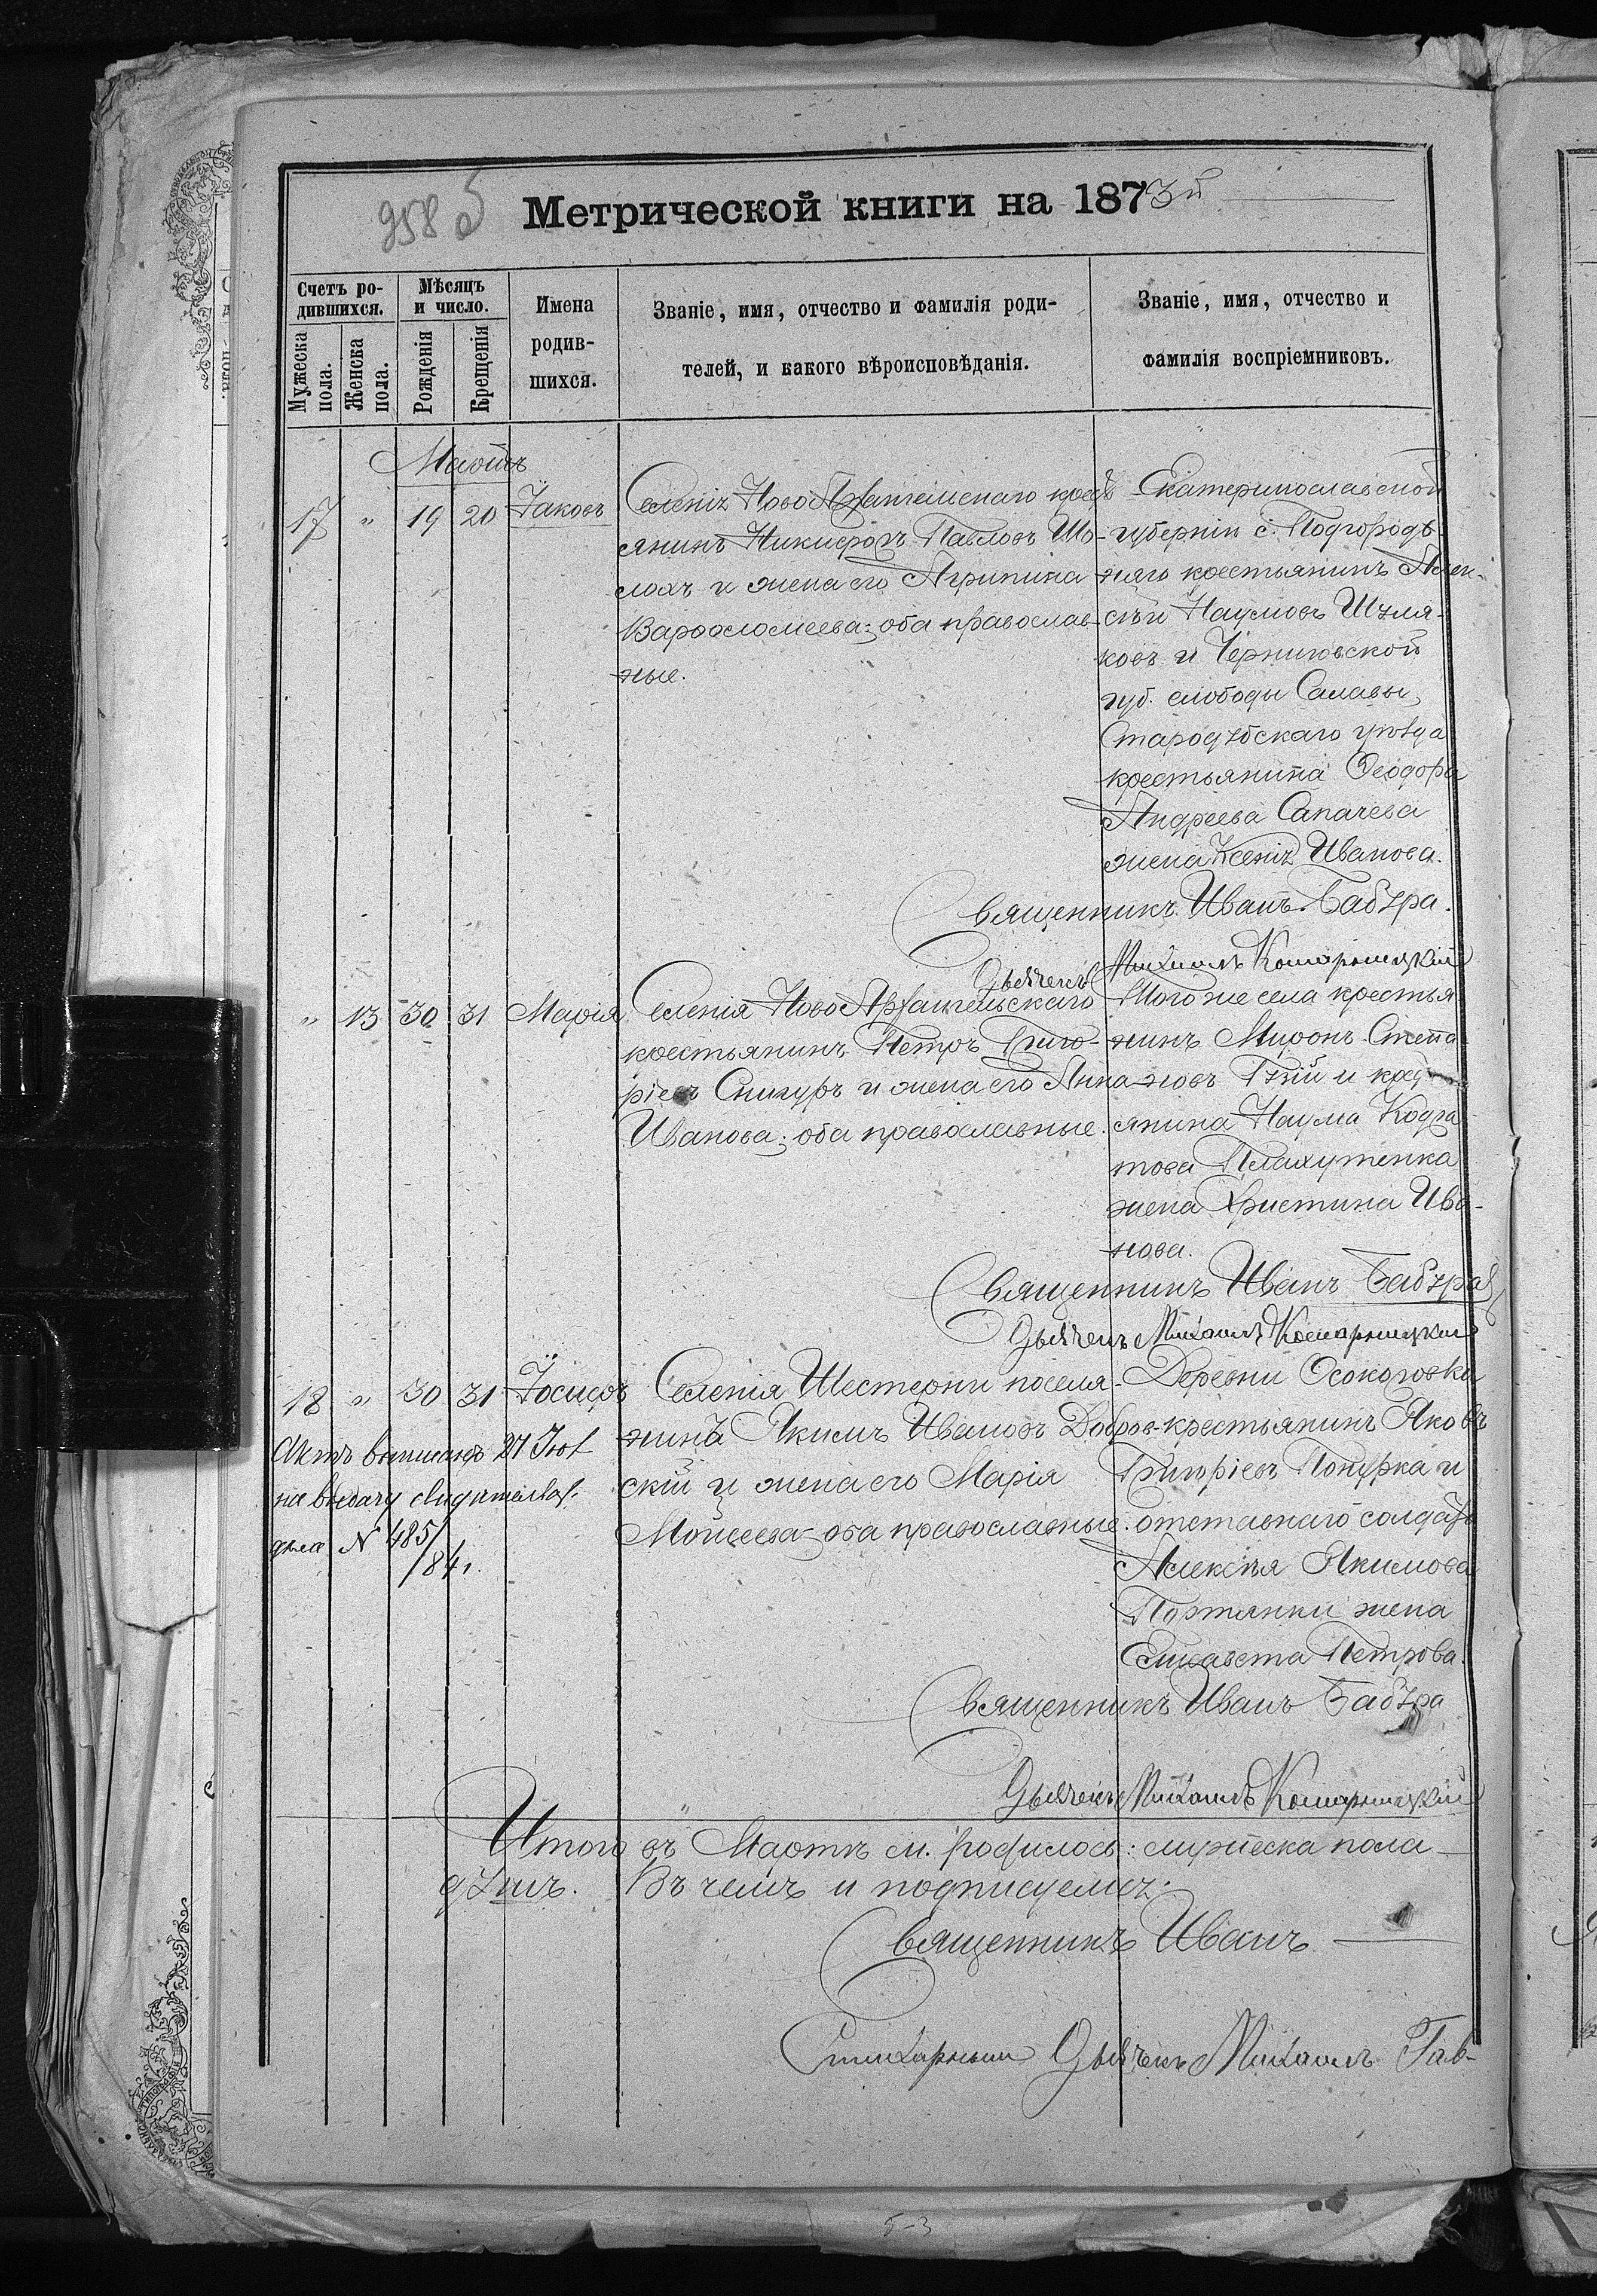 958 б
Метрической книги на 1873й
Счетъ ро-
дившихся.
Мѣсяцъ
и число.
Имена
родив-
шихся.
Званіе, имя, отчество и фамилія роди-
телей, и какого вѣроисповѣданія.
Званіе, имя, отчество и
фамилія воспріемниковъ.
Мужеска
пола.
Женска
пола.
Рожденія
Крещенія
Мартъ
17 " 19 20 Іаковъ
Селенія НовоАрхангельскаго кресть
янинъ Никифоръ Павловъ Шо-
лохъ и жена его Агрипина
Варѳоломеева; оба православ-
ные.
Екатеринославской
губерніи с. Подгородъ-
няго крестьянинъ Алек-
сѣй Наумовъ Шуля-
ковъ и Черниговской
губ. слободы Салавы
Стародубскаго уѣзда
крестьянина Ѳеодора
Андреева Сапачева
жена Ксенія Иванова.
Священникъ Иванъ Бабура.
Дьячекъ Михаилъ Комарницкій
" 13 30 31 Марія
Селенія НовоАрхангельскаго
крестьянинъ Петръ Григо-
ріевъ Снигуръ и жена его Анна
Иванова; оба православные.
Того же села крестья
нинъ Миронъ Степа
новъ Гуій и крест
янина Наума Кодра
това Плахутенка
жена Христина Ива-
нова.
Священникъ Иванъ Бабура
Дьячекъ Михаилъ Комарницкій
18 " 30 31 Іосифъ
Селенія Шестерни поселя-
нинъ Якимъ Ивановъ Добров-
скій и жена его Марія
Моисеева; оба православные.
Деревни Осокоровки
крестьянинъ Яковъ
Григоріевъ Покурка и
отставнаго солдата
Алексѣя Якимова
Портянки жена
Елисавета Петрова.
Актъ выписанъ 27 Іюл
на выдачу свидѣтельст.
дѣла № 485/84 г.
Священникъ Иванъ Бабура
Дьячекъ Михаилъ Комарницкій
Итого въ Мартѣ м. родилось: мужеска пола
душъ. Въ чемъ и подписуемся:
Священникъ Иванъ
Стихарный Дьячекъ Михаилъ Гав-
5-3